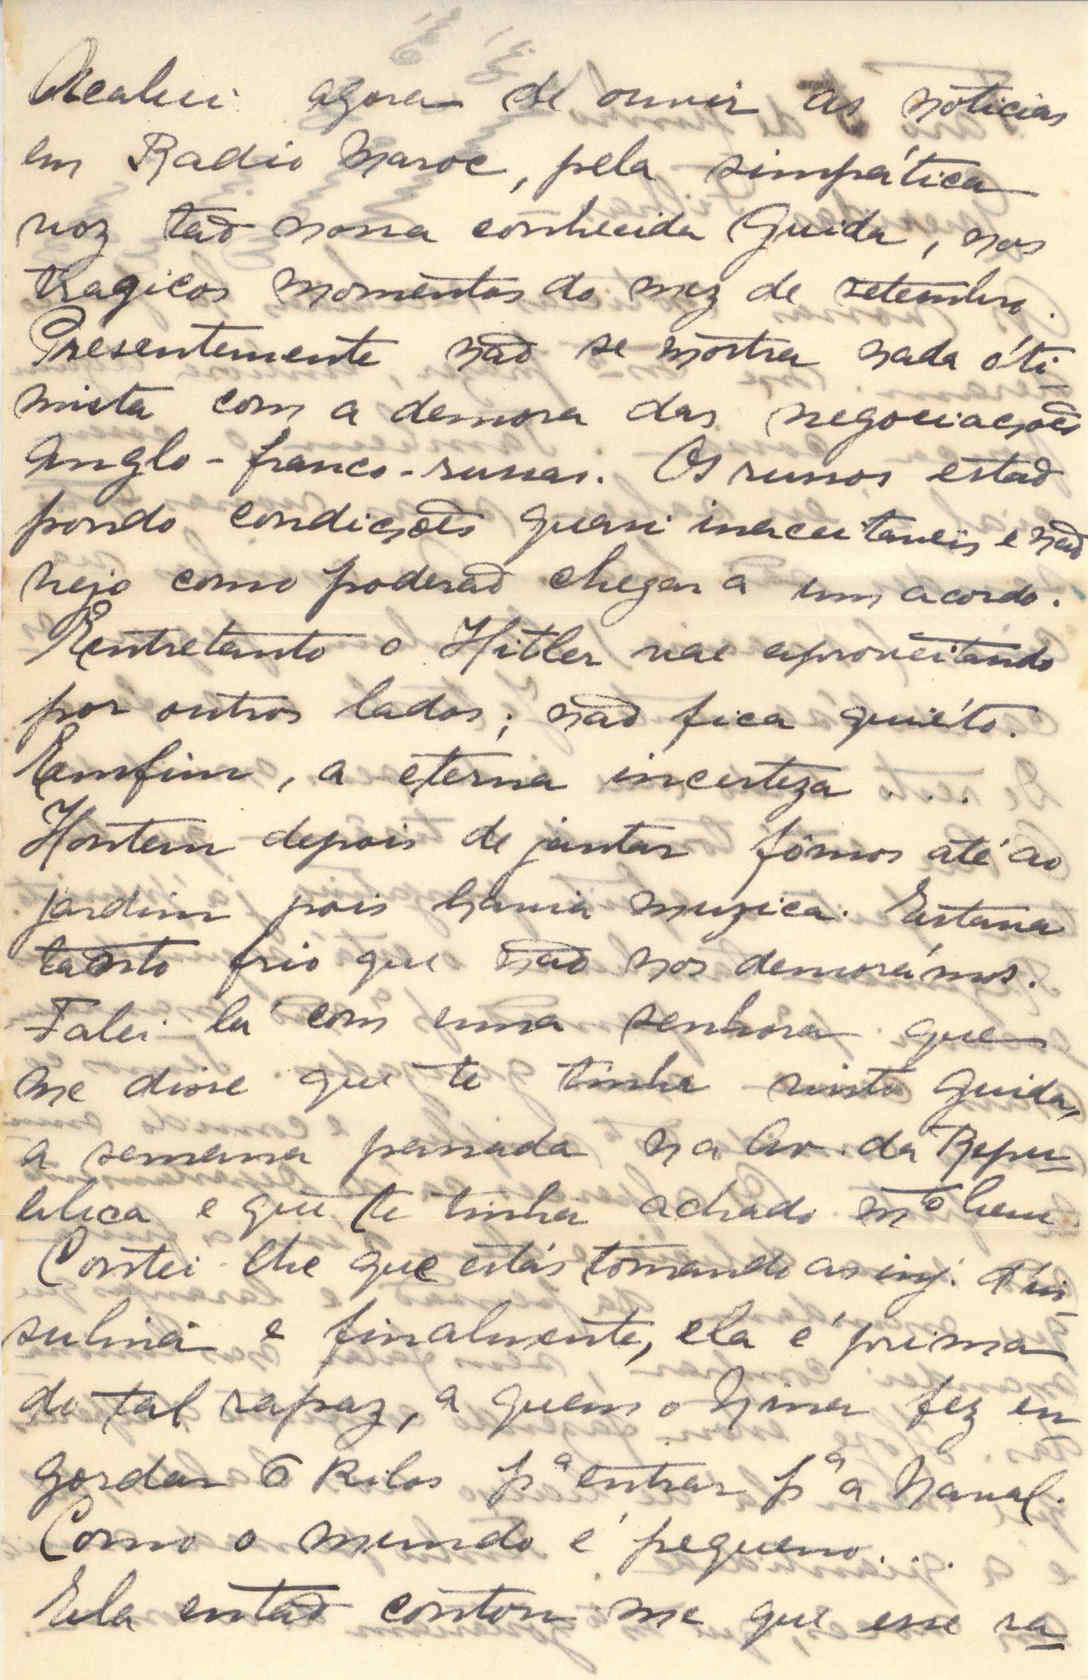 Acabei agora de ouvir as noticias
em Radio Maroc, pela simpática
voz tão nossa conhecida Guida, nos
tragicos momentos do mez de setembro.
Presentemente não se mostra nada óti-
mista com a demora das negociações
Anglo-franco-russas. Os russos estão
pondo condições quasi inaceitaveis e não
vejo como poderão chegar a um acordo.
Entretanto o Hitler vae aproveitando
por outros lados; não fica quiéto.
Emfim, a eterna incerteza . . .
Hontem depois de jantar fômos até ao
jardim pois havia muzica. Estava
tanto frio que não nos demorámos.
Falei lá com uma senhora que
me disse que te tinha visto Guida,
a semana passada na Av. da Repu-
blica e que te tinha achado mto bem.
Contei-lhe que estás tomando as inj. d'in-
sulina e finalmente, ela é prima
do tal rapaz, a quem o fez en-
gordar 6 Kilos pa entrar pa a Naval.
Como o mundo é pequeno. . .
Ela então contou-me que esse ra-